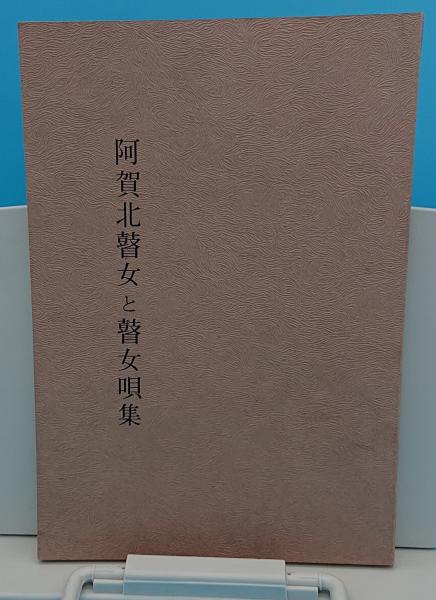 阿賀北瞽女と瞽女唄集